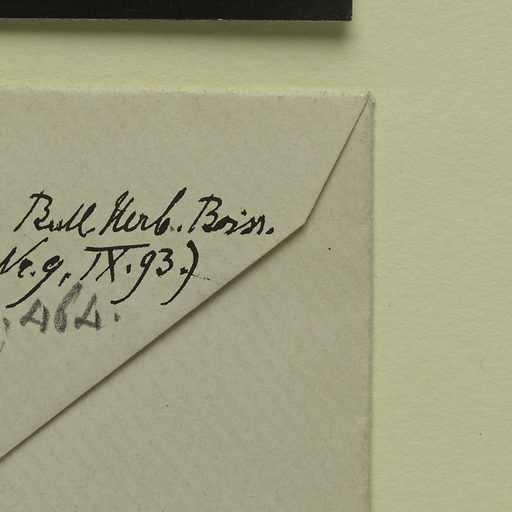 Bull. Herb. Boiss.
Nr. 9, IX. 93.)
, 464.